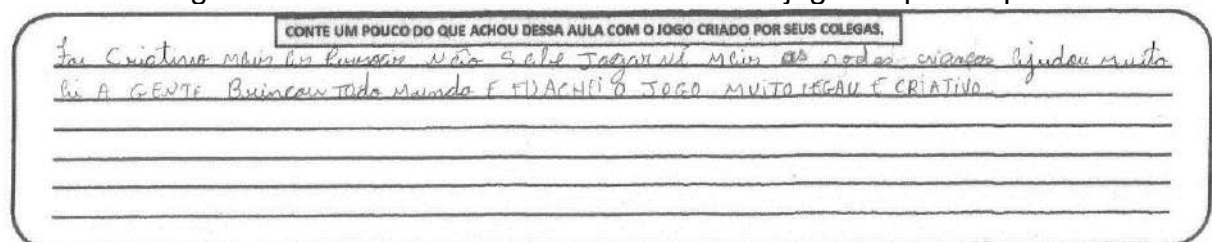 CONTE UM POUCO DO QUE ACHOU DESSA AULA COM O JOGO CRIADO POR SEUS COLEGAS.
Foi Criativo Mais as Pessoais Não Sabe Jogar Mais as crianças Ajudou muito
A GENTE Brincou Todo Mundo E ACHEI O JOGO MUITO LEGAU E CRIATIVO